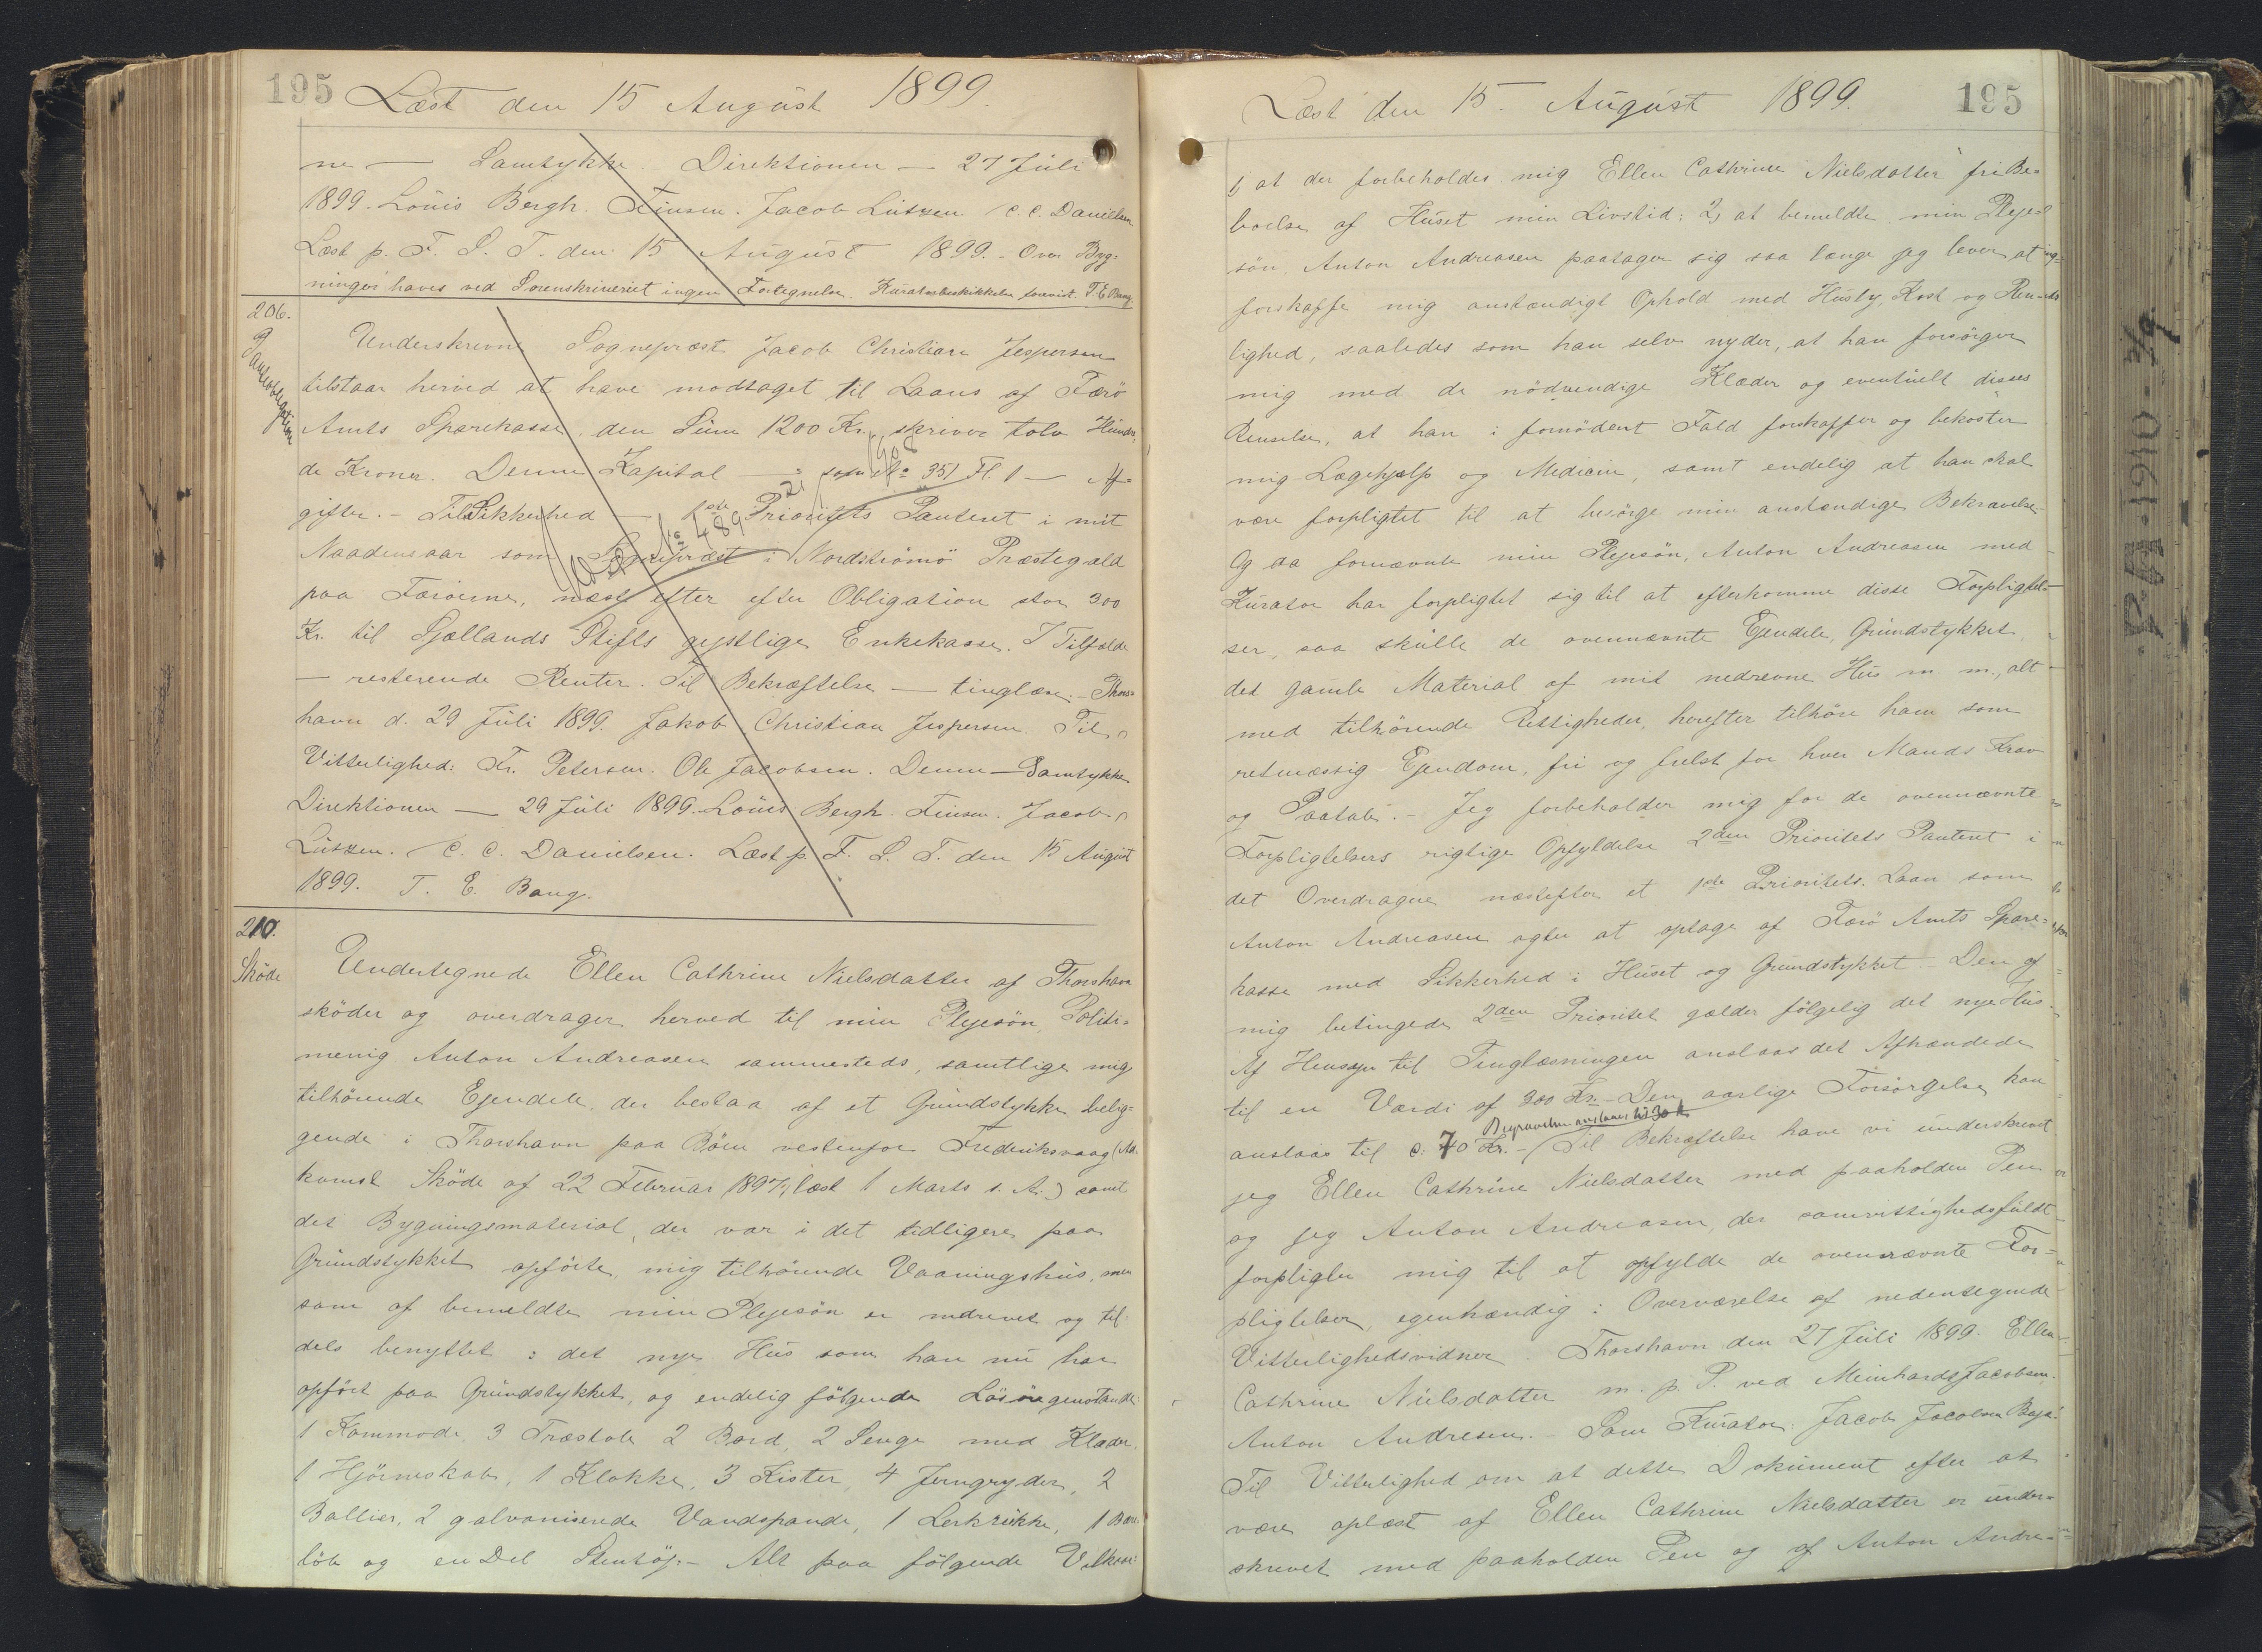 195 Læst den 15 August 1899.
ne — Samtykke. Direktionen — 27 Juli
1899. Louis Bergh. Finsen. Jacob Lützen C. C. Danielsen
Læst p. F. S. T. den 15 August 1899. - Over Byg=
ninger haves ved Sorenskriveriet ingen Fortegnelse. Kuratorbeskikkelse forevist. T. E. Bang.
206.
Underskrevne Sognepræst Jacob Christian Jespersen
tilstaar herved at have modtaget til Laans af Færö
Amts Sparekasse, den Sum 1200 Kr., skriver tolv Hundre
de Kroner. Denne Kapital — som No 351 Fl. 1 — Af=
gifter. - Til Sikkerhed — 1ste Prioritets Panteret i mit
Naadensaar som Sognepræst i Nordströmö Præstegæld
paa Færöerne, næst efter efter Obligation stor 300
Kr. til Sjællands Stifts gejstlige Enkekasse. I Tilfælde
— resterende Renter. Til Bekræftelse — tinglæse. - Thors=
havn d. 29 Juli 1899. Jakob Christian Jespersen. Til
Vitterlighed: Fr. Petersen. Ole Jacobsen. Denne — Samtykke
Direktionen — 29 Juli 1899. Louis Bergh. Finsen. Jacob
Lützen. C. C. Danielsen. Læst p. F. S. T. den 15 August
1899. T. E. Bang.
210.
Sköde
Undertegnede Ellen Cathrine Nielsdatter af Thorshavn
sköder og overdrager herved til min Plejesön, Politi=
menig Anton Andreasen sammesteds, samtlige mig
tilhörende Ejendele, der bestaa af et Grundstykke belig=
gende i Thorshavn paa Böen vestenfor Frederiksvaag (Ad=
komst Sköde af 22 Februar 1897, læst 1 Marts s. A.) samt
det Bygningsmaterial, der var i det tidligere paa
Grundstykket opförte, mig tilhörende Vaaningshus, men
som af bemeldte min Plejesön er nedrevet og til
dels benyttet i det nye Hus som han nu har
opfört paa Grundstykket, og endelig fölgende Lösöregenstande:
1 Kommode 3 Træstole 2 Bord, 2 Senge med Klæder,
1 Hjörneskab, 1 Klokke, 3 Kister, 4 Jerngryder, 2
Ballier, 2 galvaniserede Vandspande, 1 Lerkrukke, 1
löb og en Del Stentöj. - Alt paa fölgende Vilkaar:
Læst den 15. August 1899. 195
1, at der forbeholdes mig Ellen Cathrine Nielsdatter fri Be=
boelse af Huset min Livstid; 2, at bemeldte min Pleje=
sön, Anton Andreasen paatager sig saa længe jeg lever, at
forskaffe mig anstændigt Ophold med Husly, Kost og Ren=
lighed, saaledes som han selv nyder, at han forsörger
mig med de nödvendige Klæder og eventuelt disses
Renselse, at han i fornödent Fald forskaffer og bekoster
mig Lægehjælp og Medicin, samt endelig at han skal
være forpligtet til at besörge min anstændige Bekravelse.
Og da fornævnte min Plejesön, Anton Andreasen med
Kurator har forpligtet sig til at efterkomme disse Forpligtel=
ser, saa skulle de ovennævnte Ejendele, Grundstykket,
det gamle Material af mit nedrevne Hus m. m., alt
med tilhörende Rettigheder, herefter tilhöre ham som
retmæssig Ejendom, fri og frelst for hver Mands Krav
og Paatale. - Jeg forbeholder mig for de ovennævnte
Forpligtelsers rigtige Opfyldelse 2den Prioritets Panteret i
det Overdragne næstefter et 1ste Prioritets Laan som
Anton Andreasen agter at optage af Færö Amts Spare=
kasse med Sikkerhed i Huset og Grundstykket. Den af
mig betingede 2den Prioritet gælder fölgelig det nye Hus.
Af Hensyn til Tinglæsningen anslaas det Afhændede
til en Værdi af 300 Kr. - Den aarlige Forsörgelse kan
Begravelsen anslaaes til 30 Kr.
anslaas til c. 70 Kr. - Til Bekræftelse have vi underskrevet
jeg Ellen Cathrine Nielsdatter med paaholden Pen
og jeg Anton Andreasen, der samvittighedsfuldt
forpligter mig til at opfylde de ovennævnte For=
pligtelser, egenhændig i Overværelse af nedentegnede
Vitterlighedsvidner. Thorshavn den 27 Juli 1899. Ellen
Cathrine Nielsdatter m. p. P. ved Meinhardt Jacobsen.
Anton Andresen. - Som Kurator: Jacob Jacobsen
Til Vitterlighed om at dette Dokument efter at
være oplæst af Ellen Cathrine Nielsdatter er under=
skrevet med paaholden Pen og af Anton Andre=